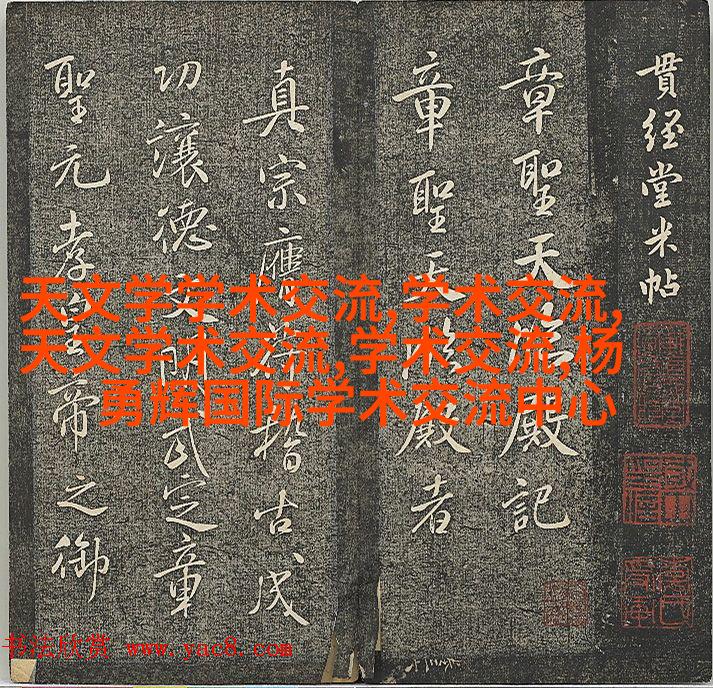 貫经堂米帖
章聖天臨殿記
章聖天臨殿者
真宗應稽古成
功讓德文明武定章
聖元孝皇帝之御
天文学学术交流,学术交流,
天文学术交流,学术交流,杨
勇辉国际学术交流中心
书法欣赏 www.yac8.com